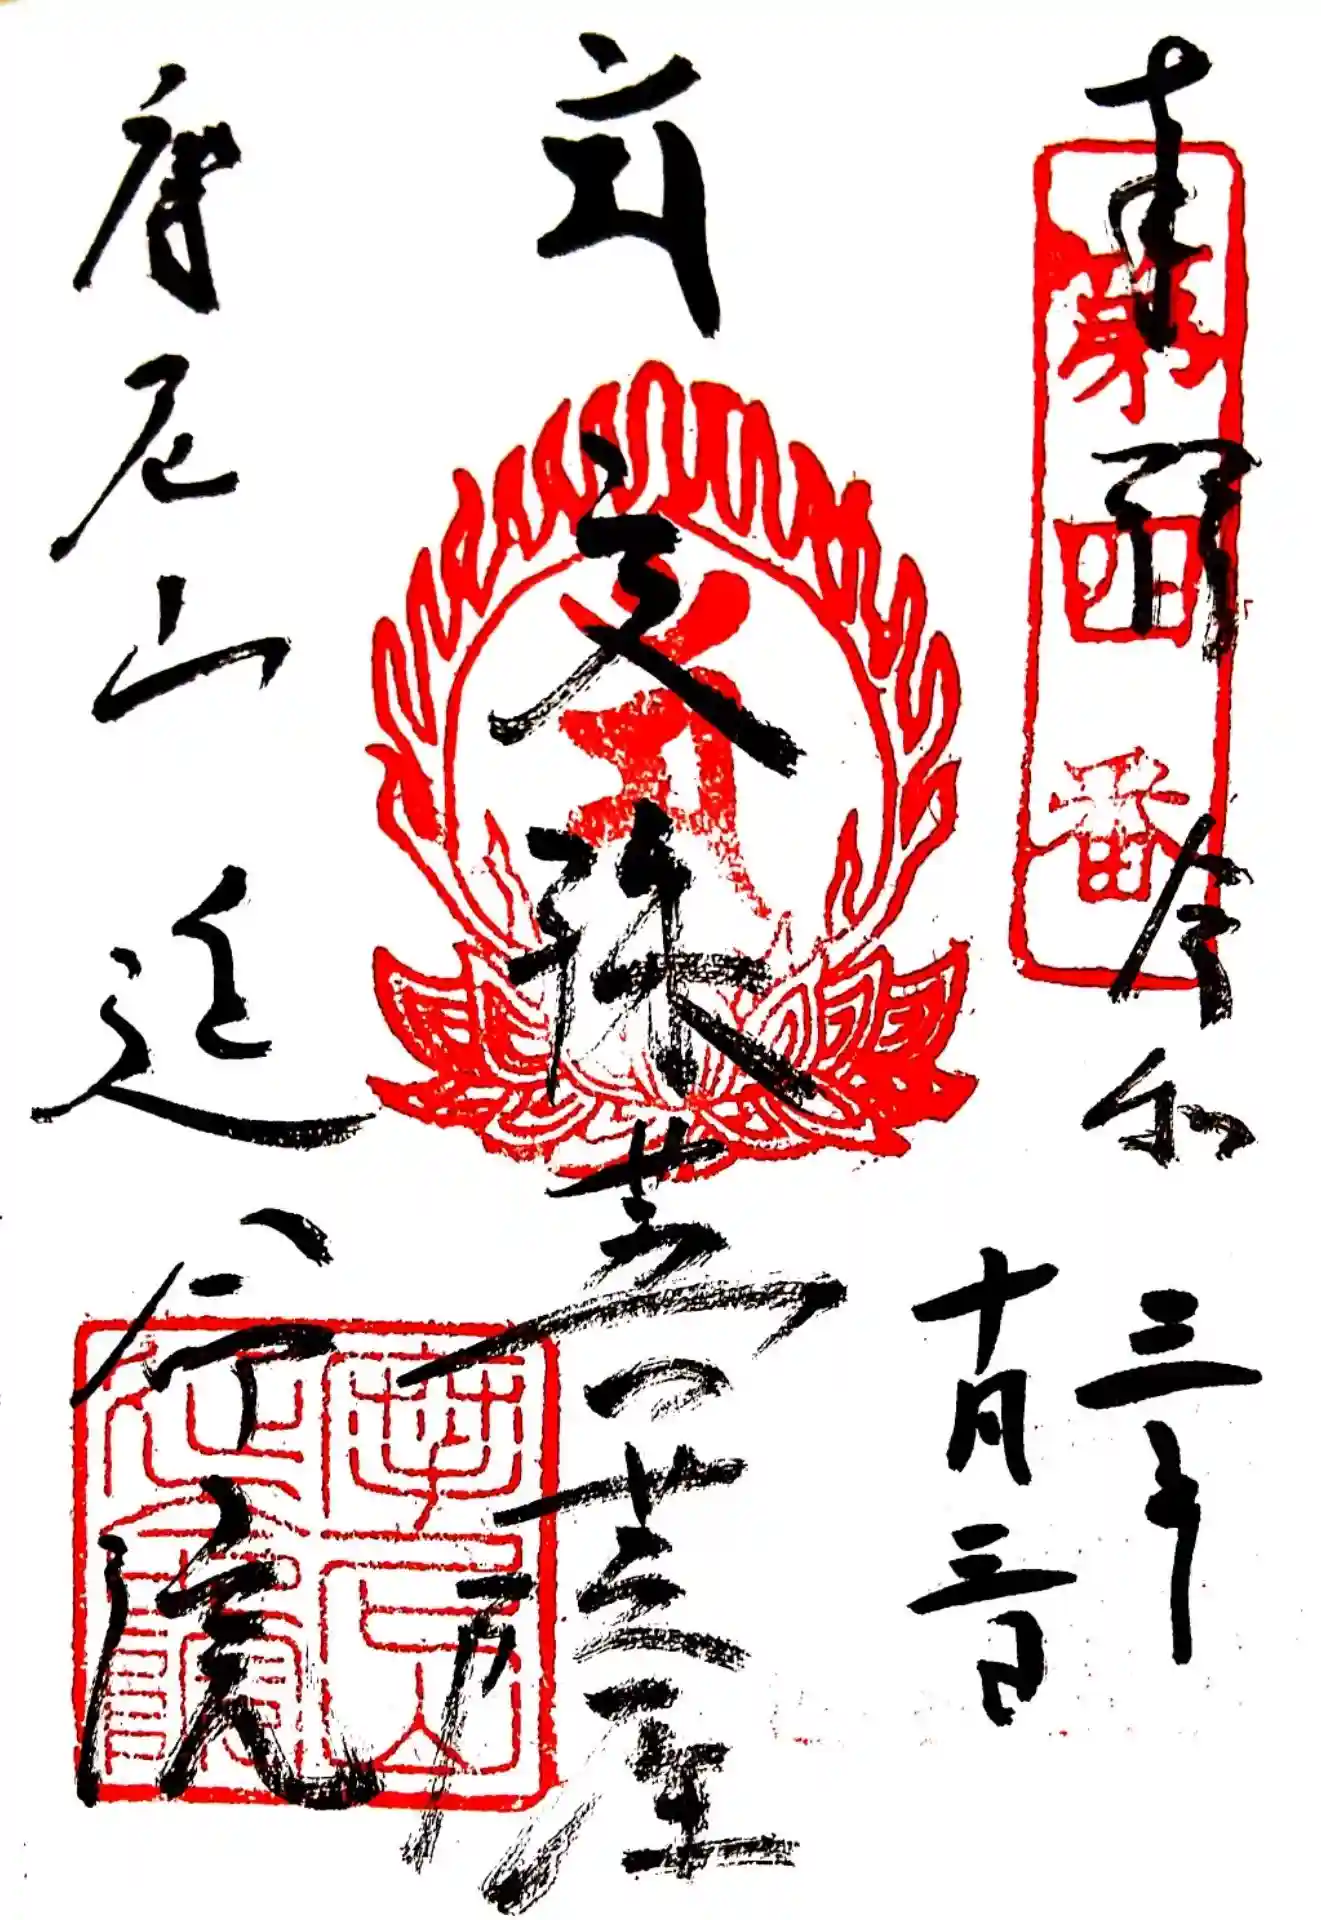 奉拝 令和三年
十月三日
第四番
文殊菩薩
摩尼山 延命院